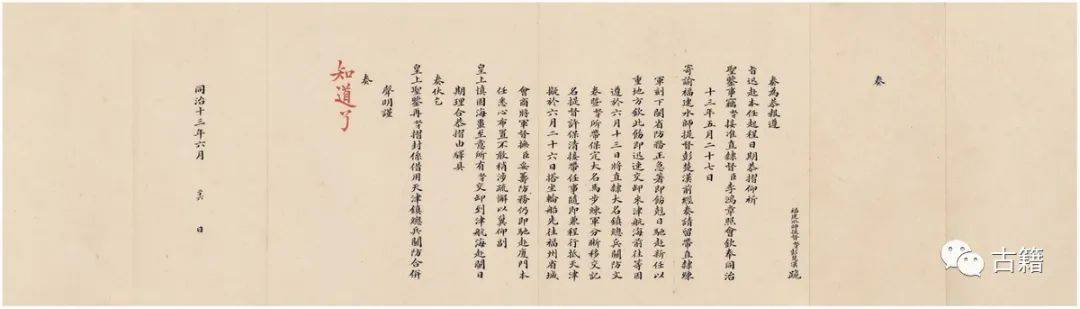 奏
福建水師提督臣彭楚漢疏
奏為恭報遵
旨迅赴本任起程日期恭摺仰祈
聖鑒事竊臣接准直隸督臣李鴻章照會欽奉同治
十三年五月二十七日
寄諭福建水師提督彭楚漢前經奏請留帶直隸練
軍刻下閩省防務正急著即飭彭日馳赴新任以
重地方欽此飭即迅速交卸來津航海前往等因
遵於六月十三日將直隸大名鎮總兵關防文
卷暨所帶保定大名馬步練軍分晰移交記
名提督許保清接帶任事隨即兼程行抵天津
擬於六月二十六日搭坐輪船先往福州省城
會商將軍督撫臣妥籌防務仍即馳赴廈門本
任悉心布置不敢稍涉疏懈以冀仰副
皇上慎固海疆至意所有臣交卸到津航海赴閩日
期理合恭摺由驛具
奏伏乞
皇上聖鑒再臣摺封係借用天津鎮總兵關防合併
聲明謹
奏
知道了
同治十三年六月 日
古籍